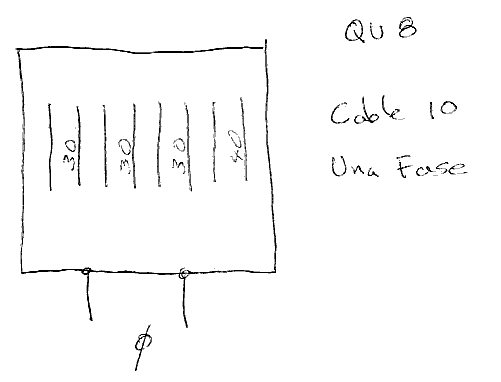 QU 8
Cable 10
Una Fase
30 30 30 40
φ